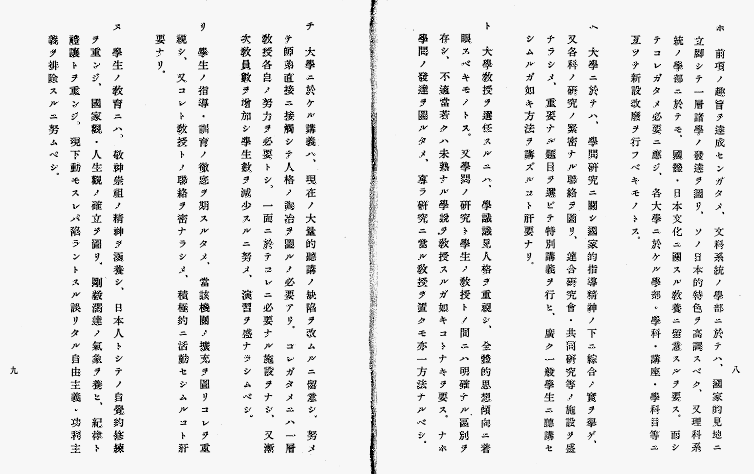 ホ　前項ノ趣旨ヲ達成センガタメ、文科系統ノ學部ニ於テハ、國家的見地ニ
立脚シテ一層諸學ノ發達ヲ圖リ、ソノ日本的特色ヲ高調スベク、又理科系
統ノ學部ニ於テモ、國體・日本文化ニ關スル敎養ニ留意スルヲ要ス。而シ
テコレガタメ必要ニ應ジ、各大學ニ於ケル學部・學科・講座・學科目等ニ
亙ツテ新設改廢ヲ行フベキモノトス。
ヘ　大學ニ於テハ、學問硏究ニ關シ國家的指導精神ノ下ニ綜合ノ實ヲ擧ゲ、
又各科ノ硏究ノ緊密ナル聯絡ヲ圖リ、連合硏究會・共同硏究等ノ施設ヲ盛
ナラシメ、重要ナル題目ヲ選ビテ特別講義ヲ行ヒ、廣ク一般學生ニ聽講セ
シムルガ如キ方法ヲ講ズルコト肝要ナリ。
ト　大學敎授ヲ選任スルニハ、學識識見人格ヲ重視シ、全體的思想傾向ニ著
眼スベキモノトス。又學問ノ硏究ト學生ノ敎授トノ間ニハ明確ナル區別ヲ
存シ、不適當若クハ未熟ナル學說ヲ敎授スルガ如キコトナキヲ要ス。ナホ
學問ノ發達ヲ圖ルタメ、專ラ硏究ニ當ル敎授ヲ置クモ亦一方法ナルベシ。
八
チ　大學ニ於ケル講義ハ、現在ノ大量的聽講ノ缺陷ヲ改ムルニ留意シ、努メ
テ師弟直接ニ接觸シテ人格ノ陶冶ヲ圖ルノ必要アリ。コレガタメニハ一層
敎授各自ノ努力ヲ必要トシ、一面ニ於テコレニ必要ナル施設ヲナシ、又漸
次敎員數ヲ增加シ學生數ヲ減少スルニ努メ、演習ヲ盛ナラシムベシ。
リ　學生ノ指導・訓育ノ徹底ヲ期スルタメ、當該機關ノ擴充ヲ圖リコレヲ重
視シ、又コレト敎授トノ聯絡ヲ密ナラシメ、積極的ニ活動セシムルコト肝
要ナリ。
ヌ　學生ノ敎育ニハ、敬神崇祖ノ精神ヲ涵養シ、日本人トシテノ自覺的修練
ヲ重ンジ、國家觀・人生觀ノ確立ヲ圖リ、剛毅濶達ノ氣象ヲ養ヒ、紀律ト
禮讓トヲ重ンジ、現下動モスレバ陷ラントスル誤リタル自由主義・功利主
義ヲ排除スルニ努ムベシ。
九